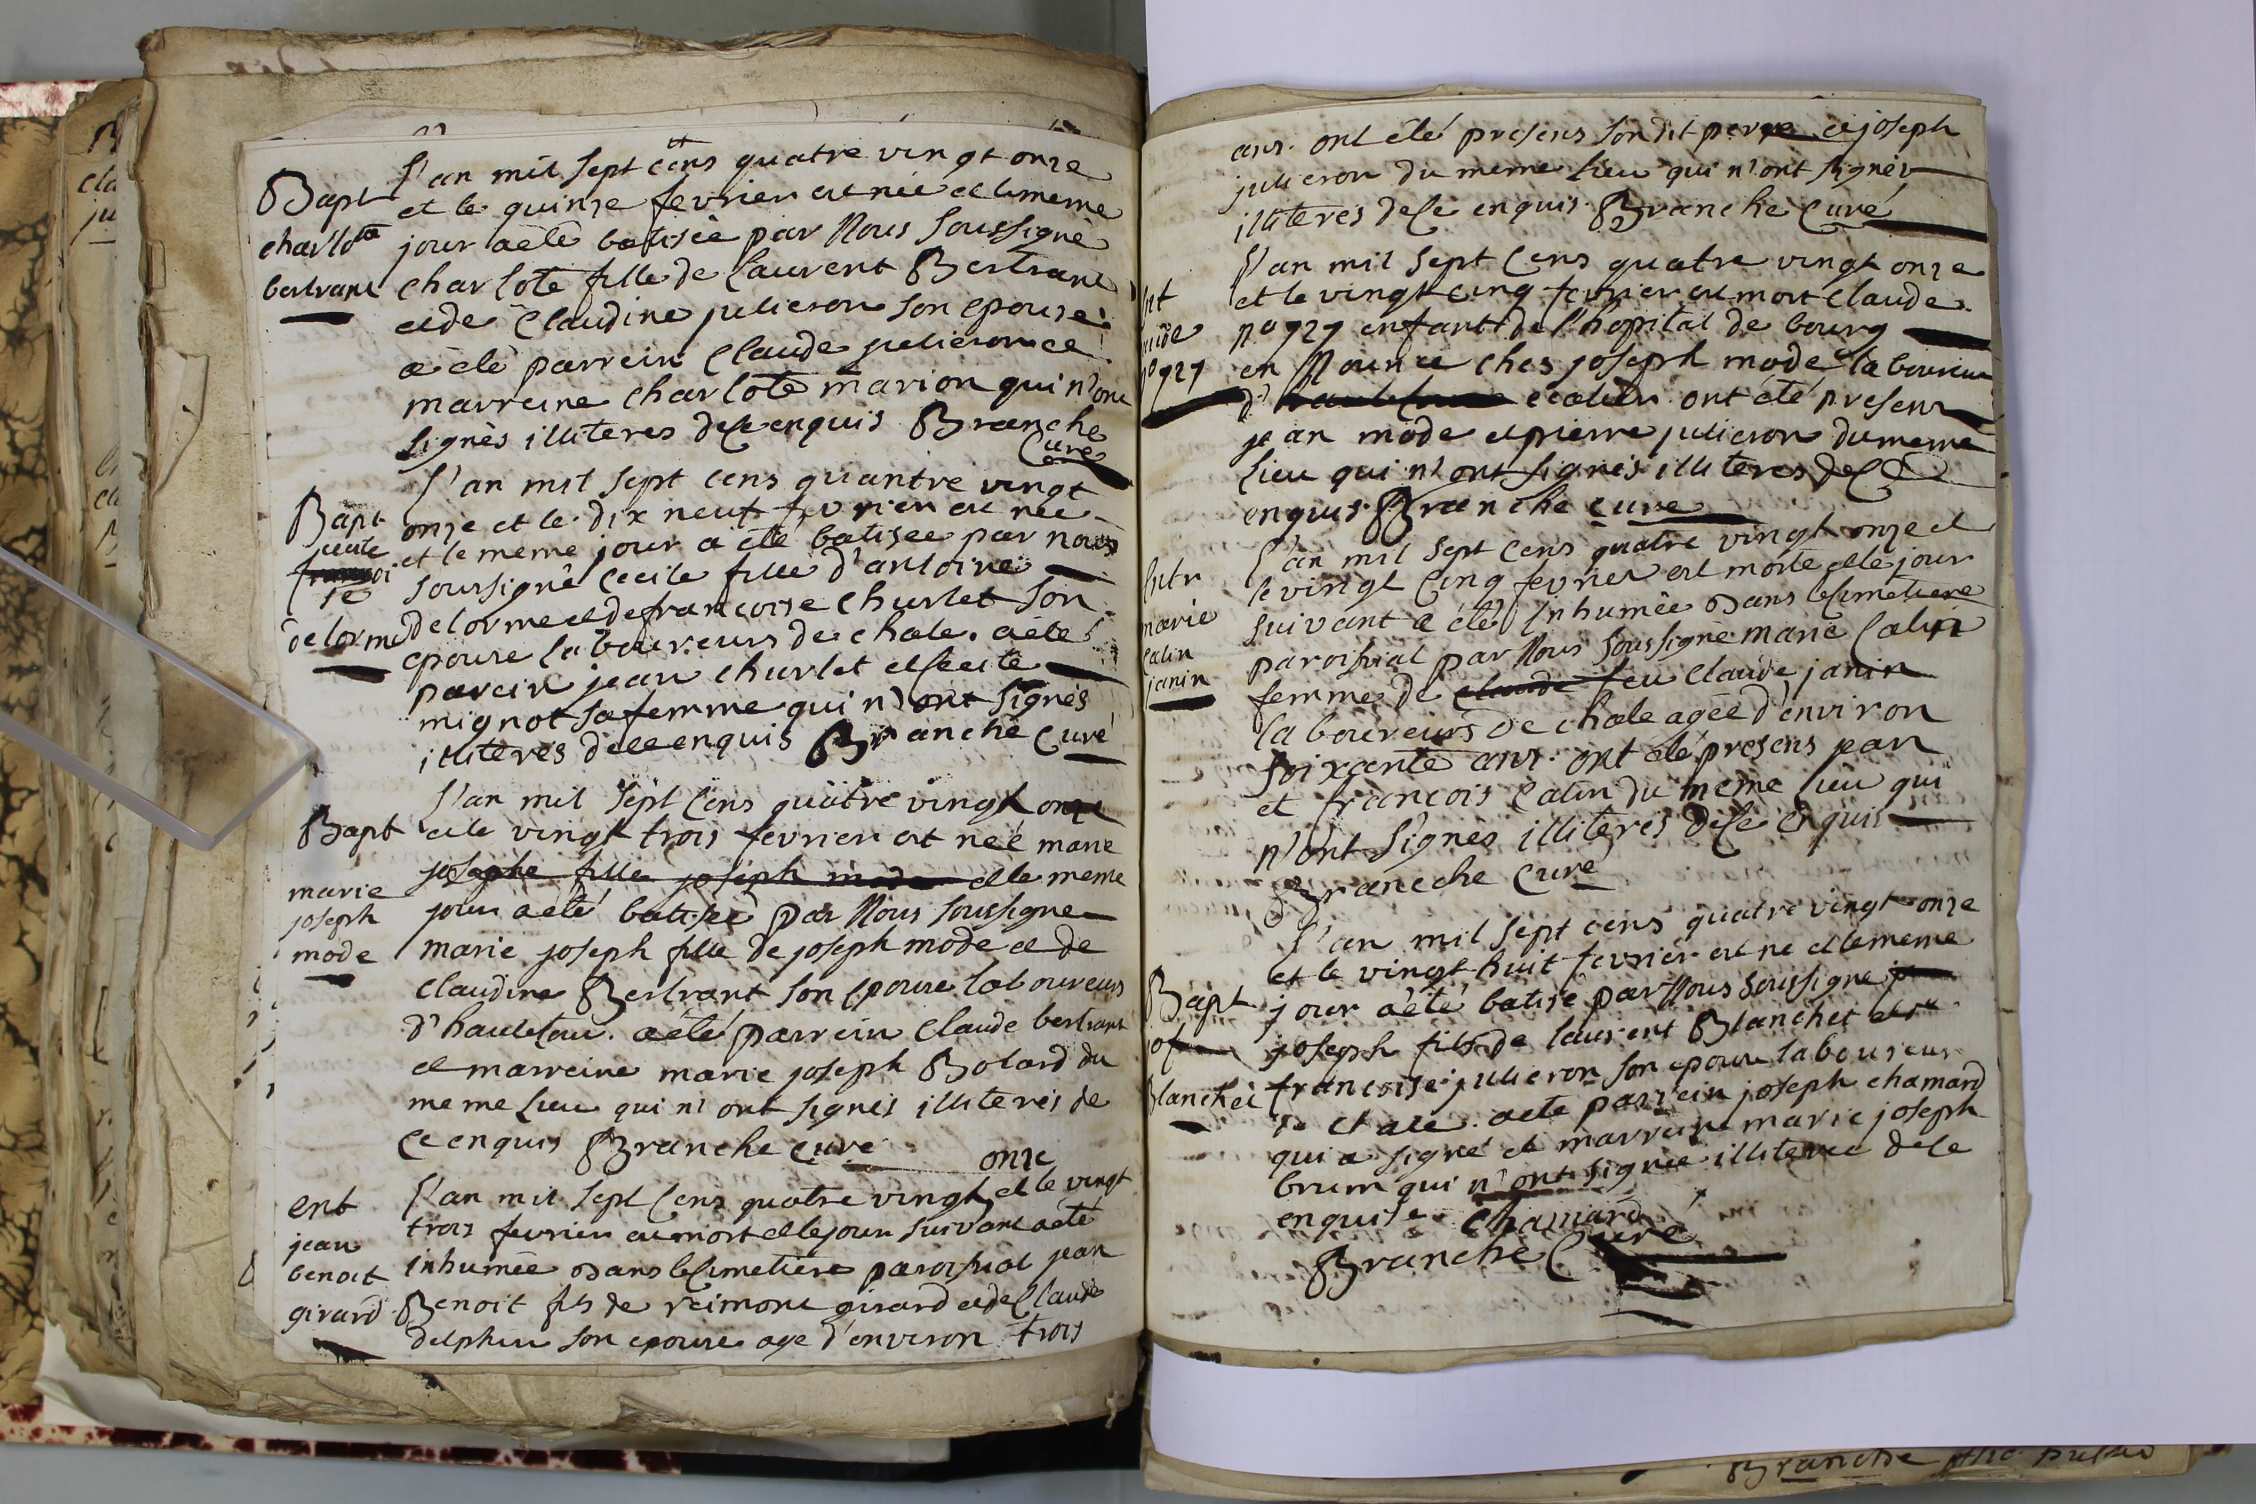 L'an mil sept cens quatre vingt onze
Bapt
et le quinze fevrier est née et le meme
charlote
jour a èté batisée par Nous Soussigné
bertrant
charlote fille de Laurent Bertrant
et de Claudine julieron son epouse
a èté parrein Claude julieron et
marreine charlote marion qui n'ont
signès illiteres de ce enquis Branche
Curé
L'an mil sept cens quantre vingt
Bapt
onze et le dix neuf fevrier est née
et le meme jour a été batisée par nous
soussigné Cecile fille d'antoine
delorme
delorme et de francoise Churlet son
epouse laboureurs de chale. a èté
parein jean churlet et Cecile
mignot sa femme qui n'ont signés
illiteres de ce enquis Branche Curé
L'an mil sept cens quatre vingt onze
Bapt
et le vingt trois fevrier est neé marie
josephe fille joseph mode et le meme
marie
joseph
mode
jour a eté batisée par Nous soussigné
marie joseph fille de joseph mode et de
Claudine Bertrant son epouse laboureurs
a èté parrein Claude bertrant
et marreine marie joseph Bolard du
meme lieu qui n'ont signés illiterés de
Ce enquis Branche Curé
onze
ent
jean
benoit
girard
L'an mil sept Cens quatre vingt et le vingt
trois fevrier est mort et le jour suivant a èté
inhumée dans le Cimetiere paroissial jean
Benoit fils de reimont girard et de Claude
delphin son epouse age d'environ trois
ans. ont élé presens son dit pere et joseph
julieron du meme lieu qui n'ont signés
illiteres de Ce enquis Branche Curé
L'an mil sept Cens quatre vingt onze
et le vingt Cinq fevrier est mort Claude
no 727 enfant de l'hopital de bourg
no 727
en Nourice ches joseph mode laboureur
d' ont èté presens
jean mode et pierre julieron du meme
Lieu qui n'ont signés illiteres de Ce
enquis Branche Curé
L'an mil sept Cens quatre vingt onze et
le vingt Cinq fevrier est morte et le jour
marie
Catin
janin
suivant a èté Inhumée dans le Cimetiere
paroissial par Nous soussigné marie Catin
femme de Claude feu Claude janin
laboureurs de chale ageé d'environ
soixante ans. ont élé presens jean
et francois Catin du meme lieu qui
n'ont signès illiteres de Ce enquis
Branche Curé
L'an mil sept cens quatre vingt onze
et le vingt huit fevrier est né et le meme
Bapt
jour a èté batisé par Nous soussigné
joseph fils de laurent Blanchet et
Blanchet
francoise julieron son epouse laboureur
de chale. a èté parrein joseph chamard
qui a signé et marreine marie joseph
brun qui n'ont signée illiterée de Ce
enquise. Chamard
Branche Curé